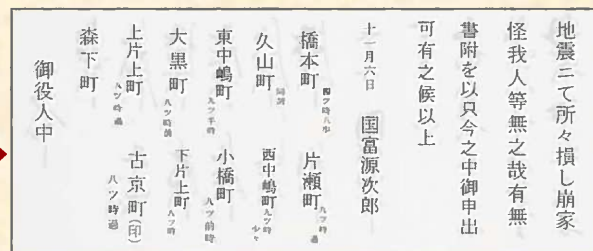 地震ニて所々損し崩家
怪我人等無之哉有無
書附を以只今之中御申出
可有之候以上
十一月六日　国富源次郎
橋本町　四ツ時八歩　片瀬町　九ツ時過
久山町　同刻　西中嶋町　九ツ時少々
東中嶋町　九ツ半時　小橋町　八ツ前時
大黒町　八ツ時前　下片上町　八ツ時
上片上町　八ツ時過　古京町（印）　八ツ時過
森下町
御役人中